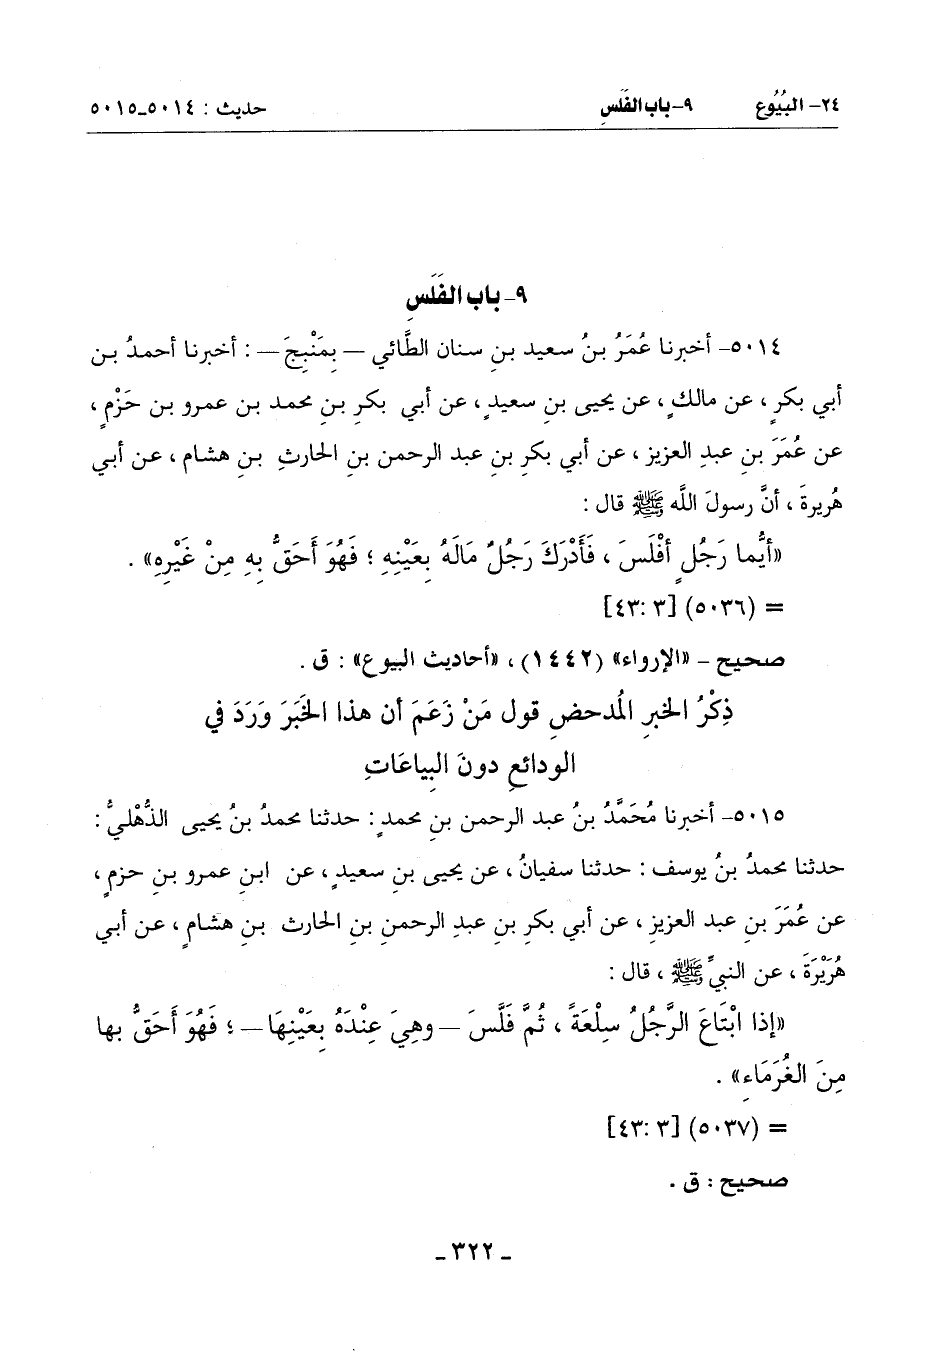 ٢٤- البُيُوع ٩-باب الفَلَسِ حديث : ٥٠١٤-٥٠١٥
٩- باب الفَلَسِ
٥٠١٤- أخبرنا عُمَرُ بنُ سعيد بنِ سنان الطَّائي – بِمَنْبِجَ – : أخبرنا أحمدُ بن
أبي بكرٍ ، عن مالكٍ ، عن يحيى بنِ سعيدٍ ، عن أبي بكرِ بنِ محمد بن عمرو بن حَزْمٍ ،
عن عُمَرَ بنِ عبدِ العزيز ، عن أبي بكرِ بنِ عبد الرحمن بنِ الحارثِ بنِ هشام ، عن أبي
هُريرةَ ، أنَّ رسولَ اللَّه ﷺ قال :
«أيُّما رَجُلٍ أفْلَسَ ، فَأَدْرَكَ رَجُلٌ مَالَهُ بِعَيْنِهِ ؛ فَهُوَ أَحَقُّ بِهِ مِنْ غَيْرِهِ» .
= (٥٠٣٦) [٣ :٤٣]
صحيح - «الإرواء» (١٤٤٢) ، «أحاديث البيوع» : ق .
ذِكْرُ الخبرِ المُدحضِ قول مَنْ زَعَمَ أن هذا الخَبَرَ وَرَدَ في
الودائعِ دونَ البِياعَاتِ
٥٠١٥- أخبرنا مُحَمَّدُ بنُ عبد الرحمن بنِ محمدٍ : حدثنا محمدُ بنُ يحيى الذُّهْليُّ :
حدثنا محمدُ بنُ يوسف : حدثنا سفيانُ ، عن يحيى بنِ سعيدٍ ، عن ابنِ عمرو بنِ حزمٍ ،
عن عُمَرَ بنِ عبد العزيزِ ، عن أبي بكرِ بنِ عبدِ الرحمنِ بنِ الحارث بنِ هشامٍ ، عن أبي
هُرَيْرَةَ ، عن النبيِّ ﷺ ، قال :
«إذا ابْتَاعَ الرَّجُلُ سِلْعَةً ، ثُمَّ فَلَّسَ – وهِيَ عِنْدَهُ بِعَيْنِهَا – ؛ فَهُوَ أَحَقُّ بها
مِنَ الغُرَمَاءِ» .
= (٥٠٣٧) [٣ :٤٣]
صحيح : ق .
- ٣٢٢ -